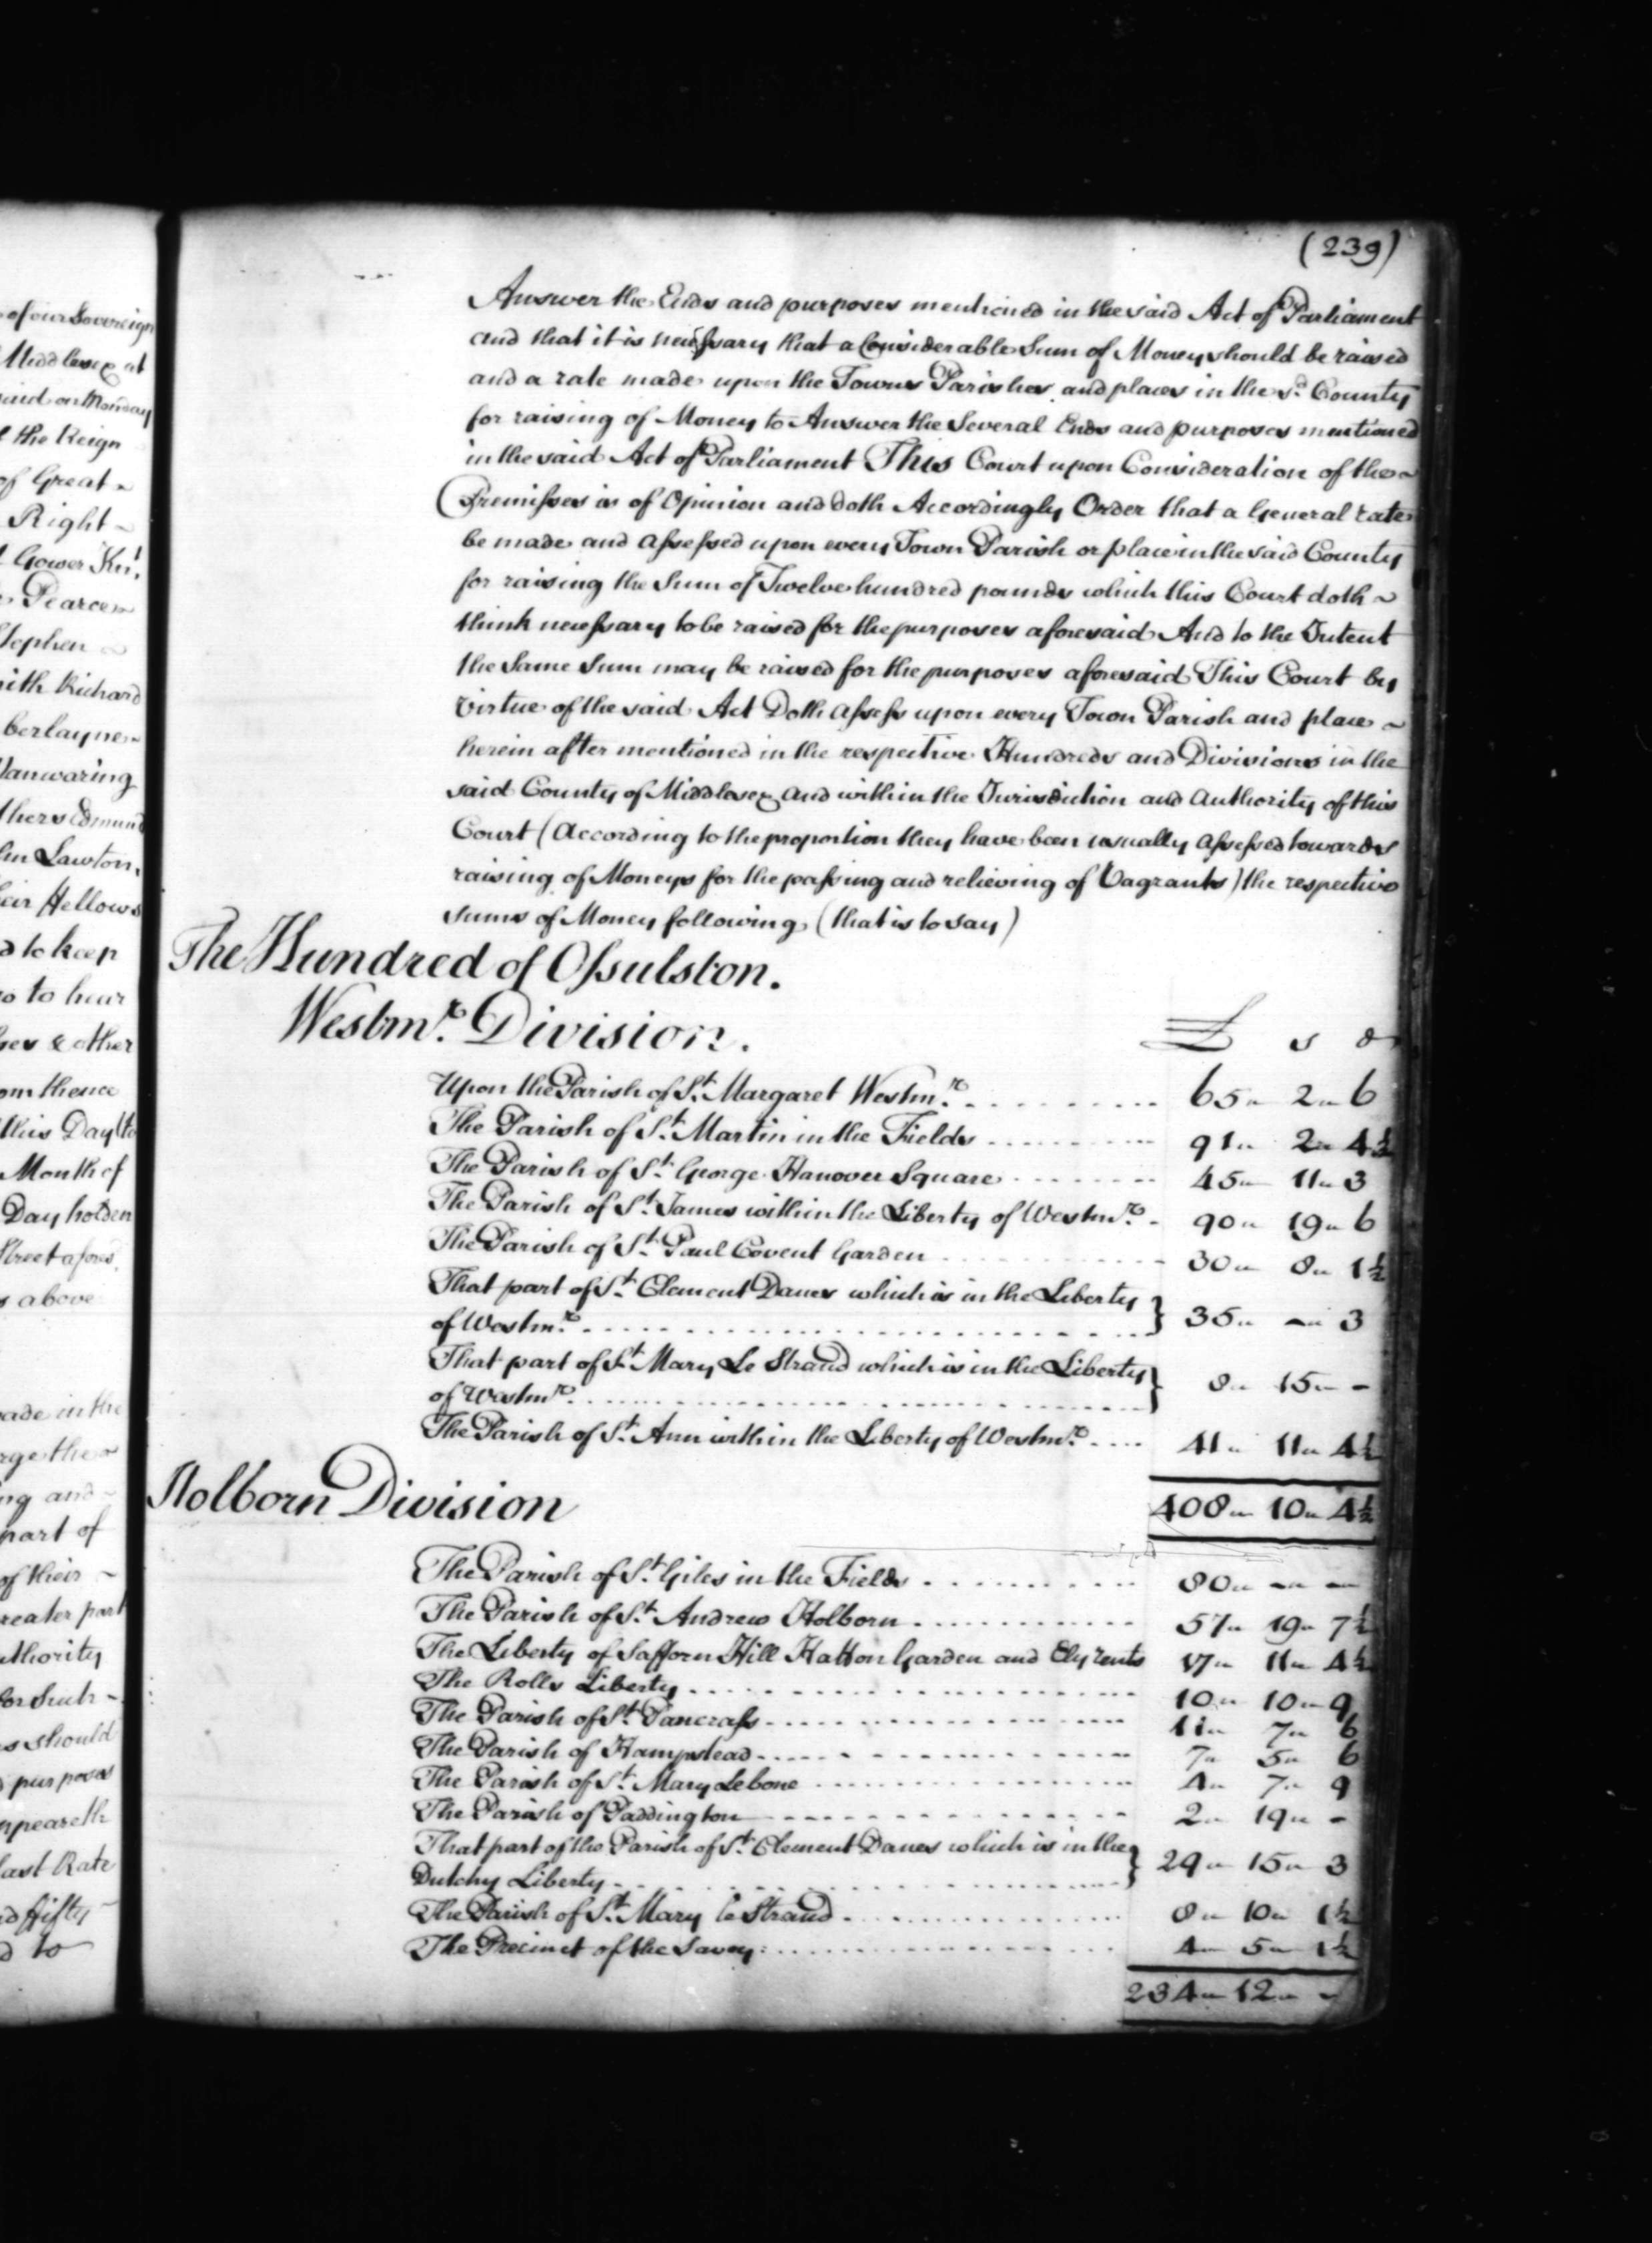 of our Sovereign
Middlesex at
said on Monday
the Reign
of Great
Right
Gower Knt.
Pearce
Stephen
Smith Richard
berlayne
Manwaring
thers Edmund
Lawton
their Fellows
to keep
to hear
& other
from thence
this Day
Month of
Day holden
Street afores.
above
made in the
part of
of their
greater part
Authority
for Such
should
purposes
appeareth
last Rate
fifty
to
(239)
Answer the Ends and purposes mentioned in the said Act of Parliament
and that it is necessary that a Considerable Sum of Money should be raised
and a rate made upon the Towns Parishes and places in the sd. County
for raising of Money to Answer the Several Ends and purposes mentioned
in the said Act of Parliament This Court upon Consideration of the
Premisses is of Opinion and doth Accordingly Order that a General rate
be made and assessed upon every Town Parish or place in the said County
for raising the Sum of Twelve hundred pounds which this Court doth
think necessary to be raised for the purposes aforesaid And to the Intent
the Same Sum may be raised for the purposes aforesaid This Court by
Virtue of the said Act Doth assess upon every Town Parish and place
herein after mentioned in the respective Hundreds and Divisions in the
said County of Middlesex and within the Jurisdiction and Authority of this
Court (according to the proportion they have been usually assessed towards
raising of Moneys for the passing and relieving of Vagrants) the respective
sums of Money following (that is to say)
The Hundred of Ossulston.
Westmr. Division.
£ s d
Upon the Parish of St. Margaret Westmr. 65 2 6
The Parish of St. Martin in the Fields 91 2 4½
The Parish of St. George Hanover Square 45 11 3
The Parish of St. James within the Liberty of Westmr. 90 19 6
The Parish of St. Paul Covent Garden 30 8 1½
That part of St. Clement Danes which is in the Liberty
of Westmr. } 35 - 3
That part of St. Mary Le Strand which is in the Liberty
of Westmr. } 8 15 -
The Parish of St. Ann within the Liberty of Westmr. 41 11 4½
408 10 4½
Holborn Division
The Parish of St. Giles in the Fields 80 - -
The Parish of St. Andrew Holborn 57 19 7½
The Liberty of Safforn Hill Hatton Garden and Ely rents 17 11 4½
The Rolls Liberty 10 10 9
The Parish of St. Pancrass 11 7 6
The Parish of Hampstead 7 5 6
The Parish of St. Mary Lebone 4 7 9
The Parish of Paddington 2 19 -
That part of the Parish of St. Clement Danes which is in the
Dutchy Liberty } 29 15 3
The Parish of St. Mary le Strand 8 10 1½
The Precinct of the Savoy: 4 5 1½
234 12 -